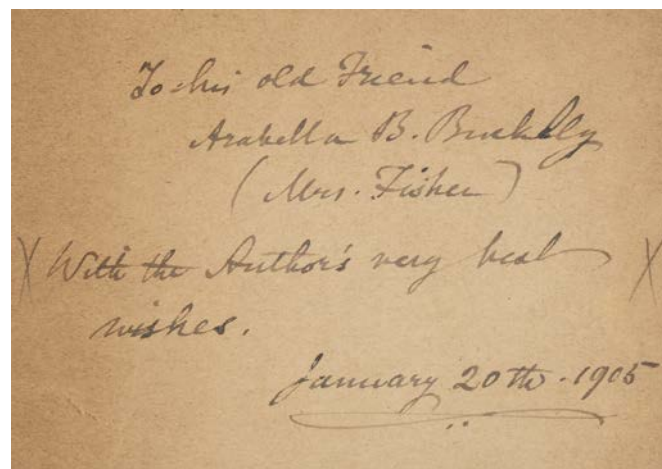 To his old Friend
Arabella B. Buckley
(Mrs. Fisher)
X With the Author's very best X
wishes.
January 20th. 1905